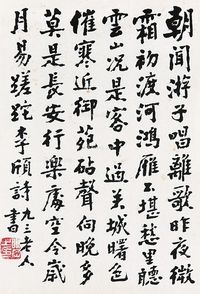 朝聞游子唱離歌昨夜微
霜初渡河鴻雁不堪愁里聽
雲山況是客中過關城曙色
催寒近御苑砧聲向晚多
莫是長安行樂處空令歲
月易蹉跎李頎詩九三老人
書